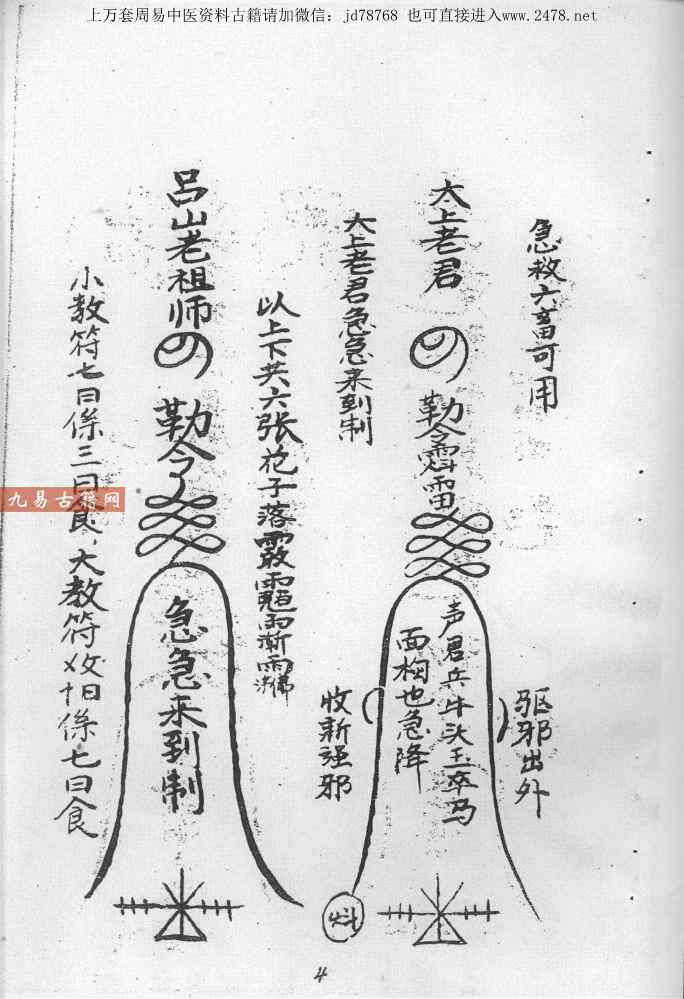 上万套周易中医资料古籍请加微信：jd78768 也可直接进入www.2478.net
急救六畜可用
太上老君
勒令
雷
声君兵牛头玉卒马
面相也急降
驱邪出外
收新强邪
太上老君急急来到制
以上下共六张花子落
吕山老祖师
勒令
急急来到制
小教符七日條三日食、大教符
日條七日食
九易古籍网
4